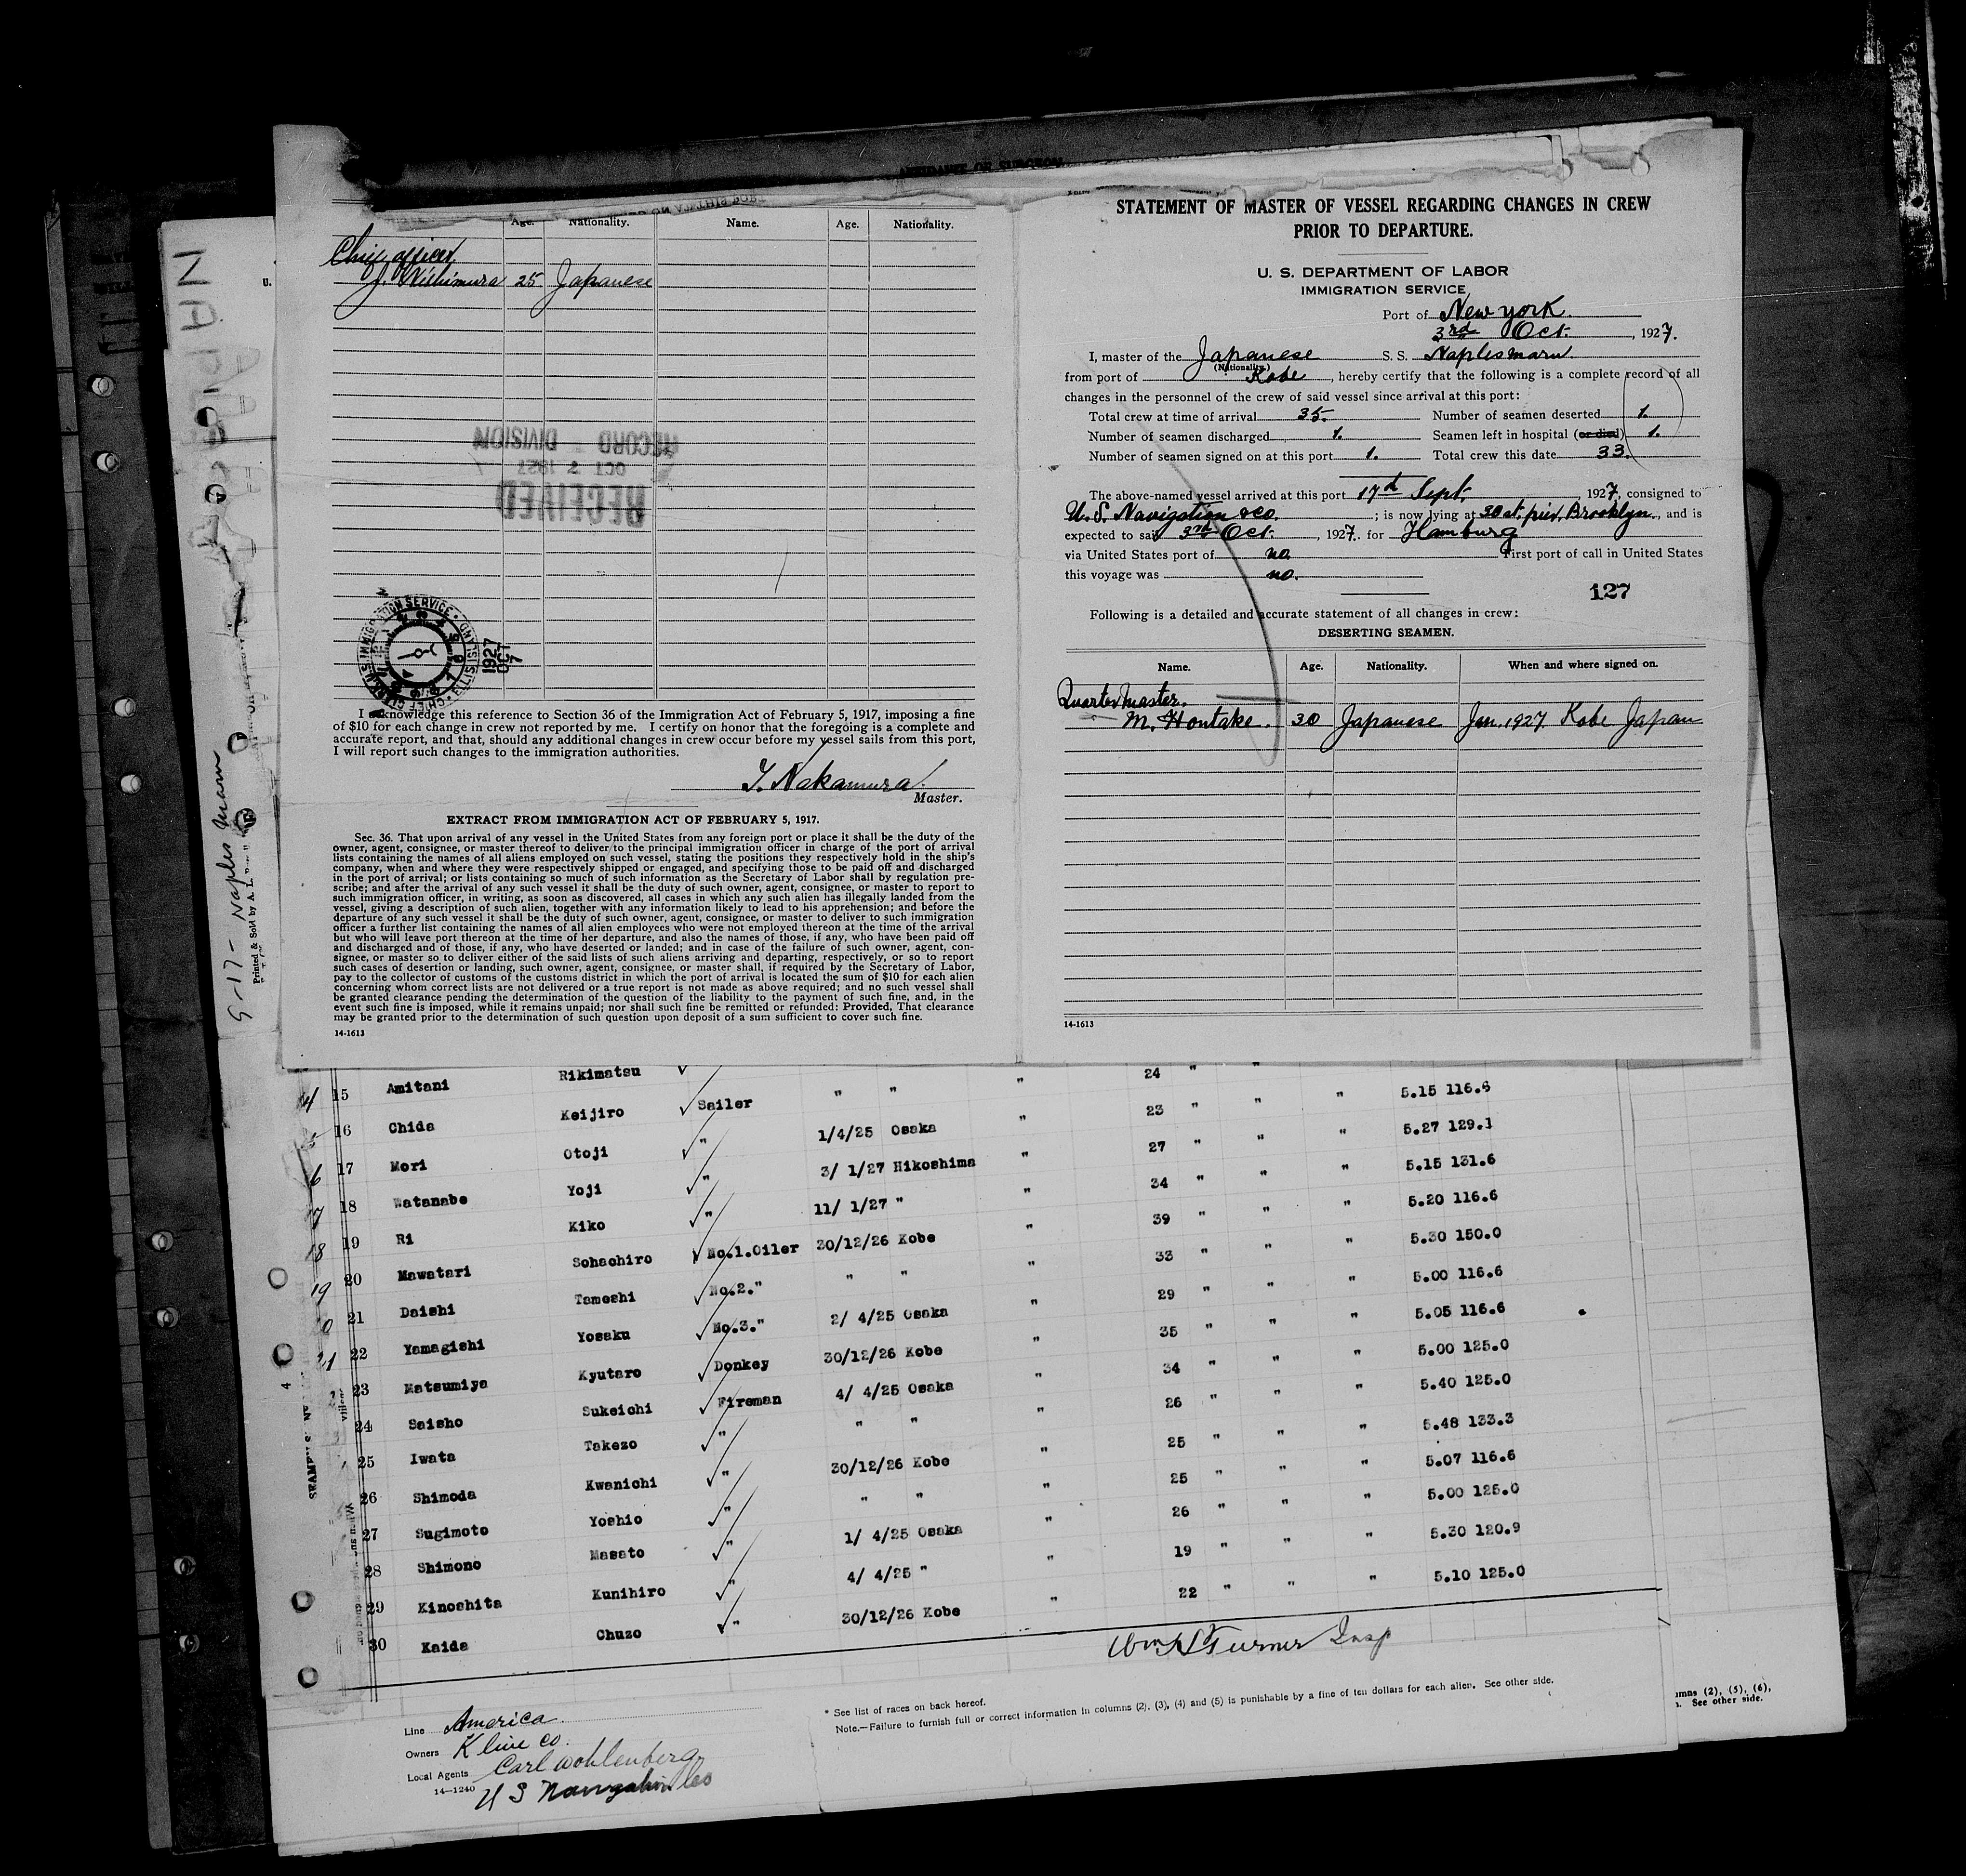 AFFIDAVIT OF SURGEON
Age. Nationality. Name. Age. Nationality.
Chief officer
J. Nishimura 25 Japanese
RECORD DIVISION
OCT 7 1927
RECEIVED
1927 OCT 7
I acknowledge this reference to Section 36 of the Immigration Act of February 5, 1917, imposing a fine
of $10 for each change in crew not reported by me. I certify on honor that the foregoing is a complete and
accurate report, and that, should any additional changes in crew occur before my vessel sails from this port,
I will report such changes to the immigration authorities.
Y. Nakamura
Master.
EXTRACT FROM IMMIGRATION ACT OF FEBRUARY 5, 1917.
Sec. 36. That upon arrival of any vessel in the United States from any foreign port or place it shall be the duty of the
owner, agent, consignee, or master thereof to deliver to the principal immigration officer in charge of the port of arrival
lists containing the names of all aliens employed on such vessel, stating the positions they respectively hold in the ship's
company, when and where they were respectively shipped or engaged, and specifying those to be paid off and discharged
in the port of arrival; or lists containing so much of such information as the Secretary of Labor shall by regulation pre-
scribe; and after the arrival of any such vessel it shall be the duty of such owner, agent, consignee, or master to report to
such immigration officer, in writing, as soon as discovered, all cases in which any such alien has illegally landed from the
vessel, giving a description of such alien, together with any information likely to lead to his apprehension; and before the
departure of any such vessel it shall be the duty of such owner, agent, consignee, or master to deliver to such immigration
officer a further list containing the names of all alien employees who were not employed thereon at the time of the arrival
but who will leave port thereon at the time of her departure, and also the names of those, if any, who have been paid off
and discharged and of those, if any, who have deserted or landed; and in case of the failure of such owner, agent, con-
signee, or master so to deliver either of the said lists of such aliens arriving and departing, respectively, or so to report
such cases of desertion or landing, such owner, agent, consignee, or master shall, if required by the Secretary of Labor,
pay to the collector of customs of the customs district in which the port of arrival is located the sum of $10 for each alien
concerning whom correct lists are not delivered or a true report is not made as above required; and no such vessel shall
be granted clearance pending the determination of the question of the liability to the payment of such fine, and, in the
event such fine is imposed, while it remains unpaid; nor shall such fine be remitted or refunded: Provided, That clearance
may be granted prior to the determination of such question upon deposit of a sum sufficient to cover such fine.
14-1613
STATEMENT OF MASTER OF VESSEL REGARDING CHANGES IN CREW
PRIOR TO DEPARTURE.
U. S. DEPARTMENT OF LABOR
IMMIGRATION SERVICE
Port of New York.
3rd Oct. , 1927.
I, master of the Japanese S. S. Naplesmaru
(Nationality.)
from port of Kobe , hereby certify that the following is a complete record of all
changes in the personnel of the crew of said vessel since arrival at this port:
Total crew at time of arrival 35. Number of seamen deserted 1.
Number of seamen discharged 1. Seamen left in hospital (or died) 1.
Number of seamen signed on at this port 1. Total crew this date 33.
The above-named vessel arrived at this port 17th Sept. , 1927, consigned to
U. S. Navigation &co. ; is now lying at 30 st. pier, Brooklyn , and is
expected to sail 3rd Oct. , 1927. for Hamburg
via United States port of no First port of call in United States
this voyage was no.
127
Following is a detailed and accurate statement of all changes in crew:
DESERTING SEAMEN.
Name. Age. Nationality. When and where signed on.
Quartermaster.
M. Hontake. 30 Japanese Jan. 1927 Kobe Japan
14-1613
9-17- Naples Maru
15 Amitani Rikimatsu " " " 24 " " " 5.15 116.6
16 Chida Keijiro Sailer 1/4/25 Osaka " 23 " " " 5.27 129.1
17 Mori Otoji " 3/ 1/27 Hikoshima " 27 " " " 5.15 131.6
18 Watanabe Yoji " 11/ 1/27 " " 34 " " " 5.20 116.6
19 Ri Kiko " 30/12/26 Kobe " 39 " " " 5.30 150.0
20 Mawatari Sohachiro No.1.Oiler " " " 33 " " " 5.00 116.6
21 Daishi Tameshi No.2." 2/ 4/25 Osaka " 29 " " " 5.05 116.6
22 Yamagishi Yosaku No.3." 30/12/26 Kobe " 35 " " " 5.00 125.0
23 Matsumiya Kyutaro Donkey 4/ 4/25 Osaka " 34 " " " 5.40 125.0
24 Saisho Sukeichi Fireman " " " 26 " " " 5.48 133.3
25 Iwata Takezo " 30/12/26 Kobe " 25 " " " 5.07 116.6
26 Shimoda Kwanichi " " " " 25 " " " 5.00 125.0
27 Sugimoto Yoshio " 1/ 4/25 Osaka " 26 " " " 5.30 120.9
28 Shimono Masato " 4/ 4/25 " " 19 " " " 5.10 125.0
29 Kinoshita Kunihiro " 30/12/26 Kobe " 22 " " "
30 Kaida Chuzo "
Wm S Turner Insp
* See list of races on back hereof.
Note.—Failure to furnish full or correct information in columns (2), (3), (4) and (5) is punishable by a fine of ten dollars for each alien. See other side.
Line America
Owners K line co.
Local Agents Carl Wohlenberg
14-1240 U S Navigation Co
umns (2), (5), (6),
See other side.